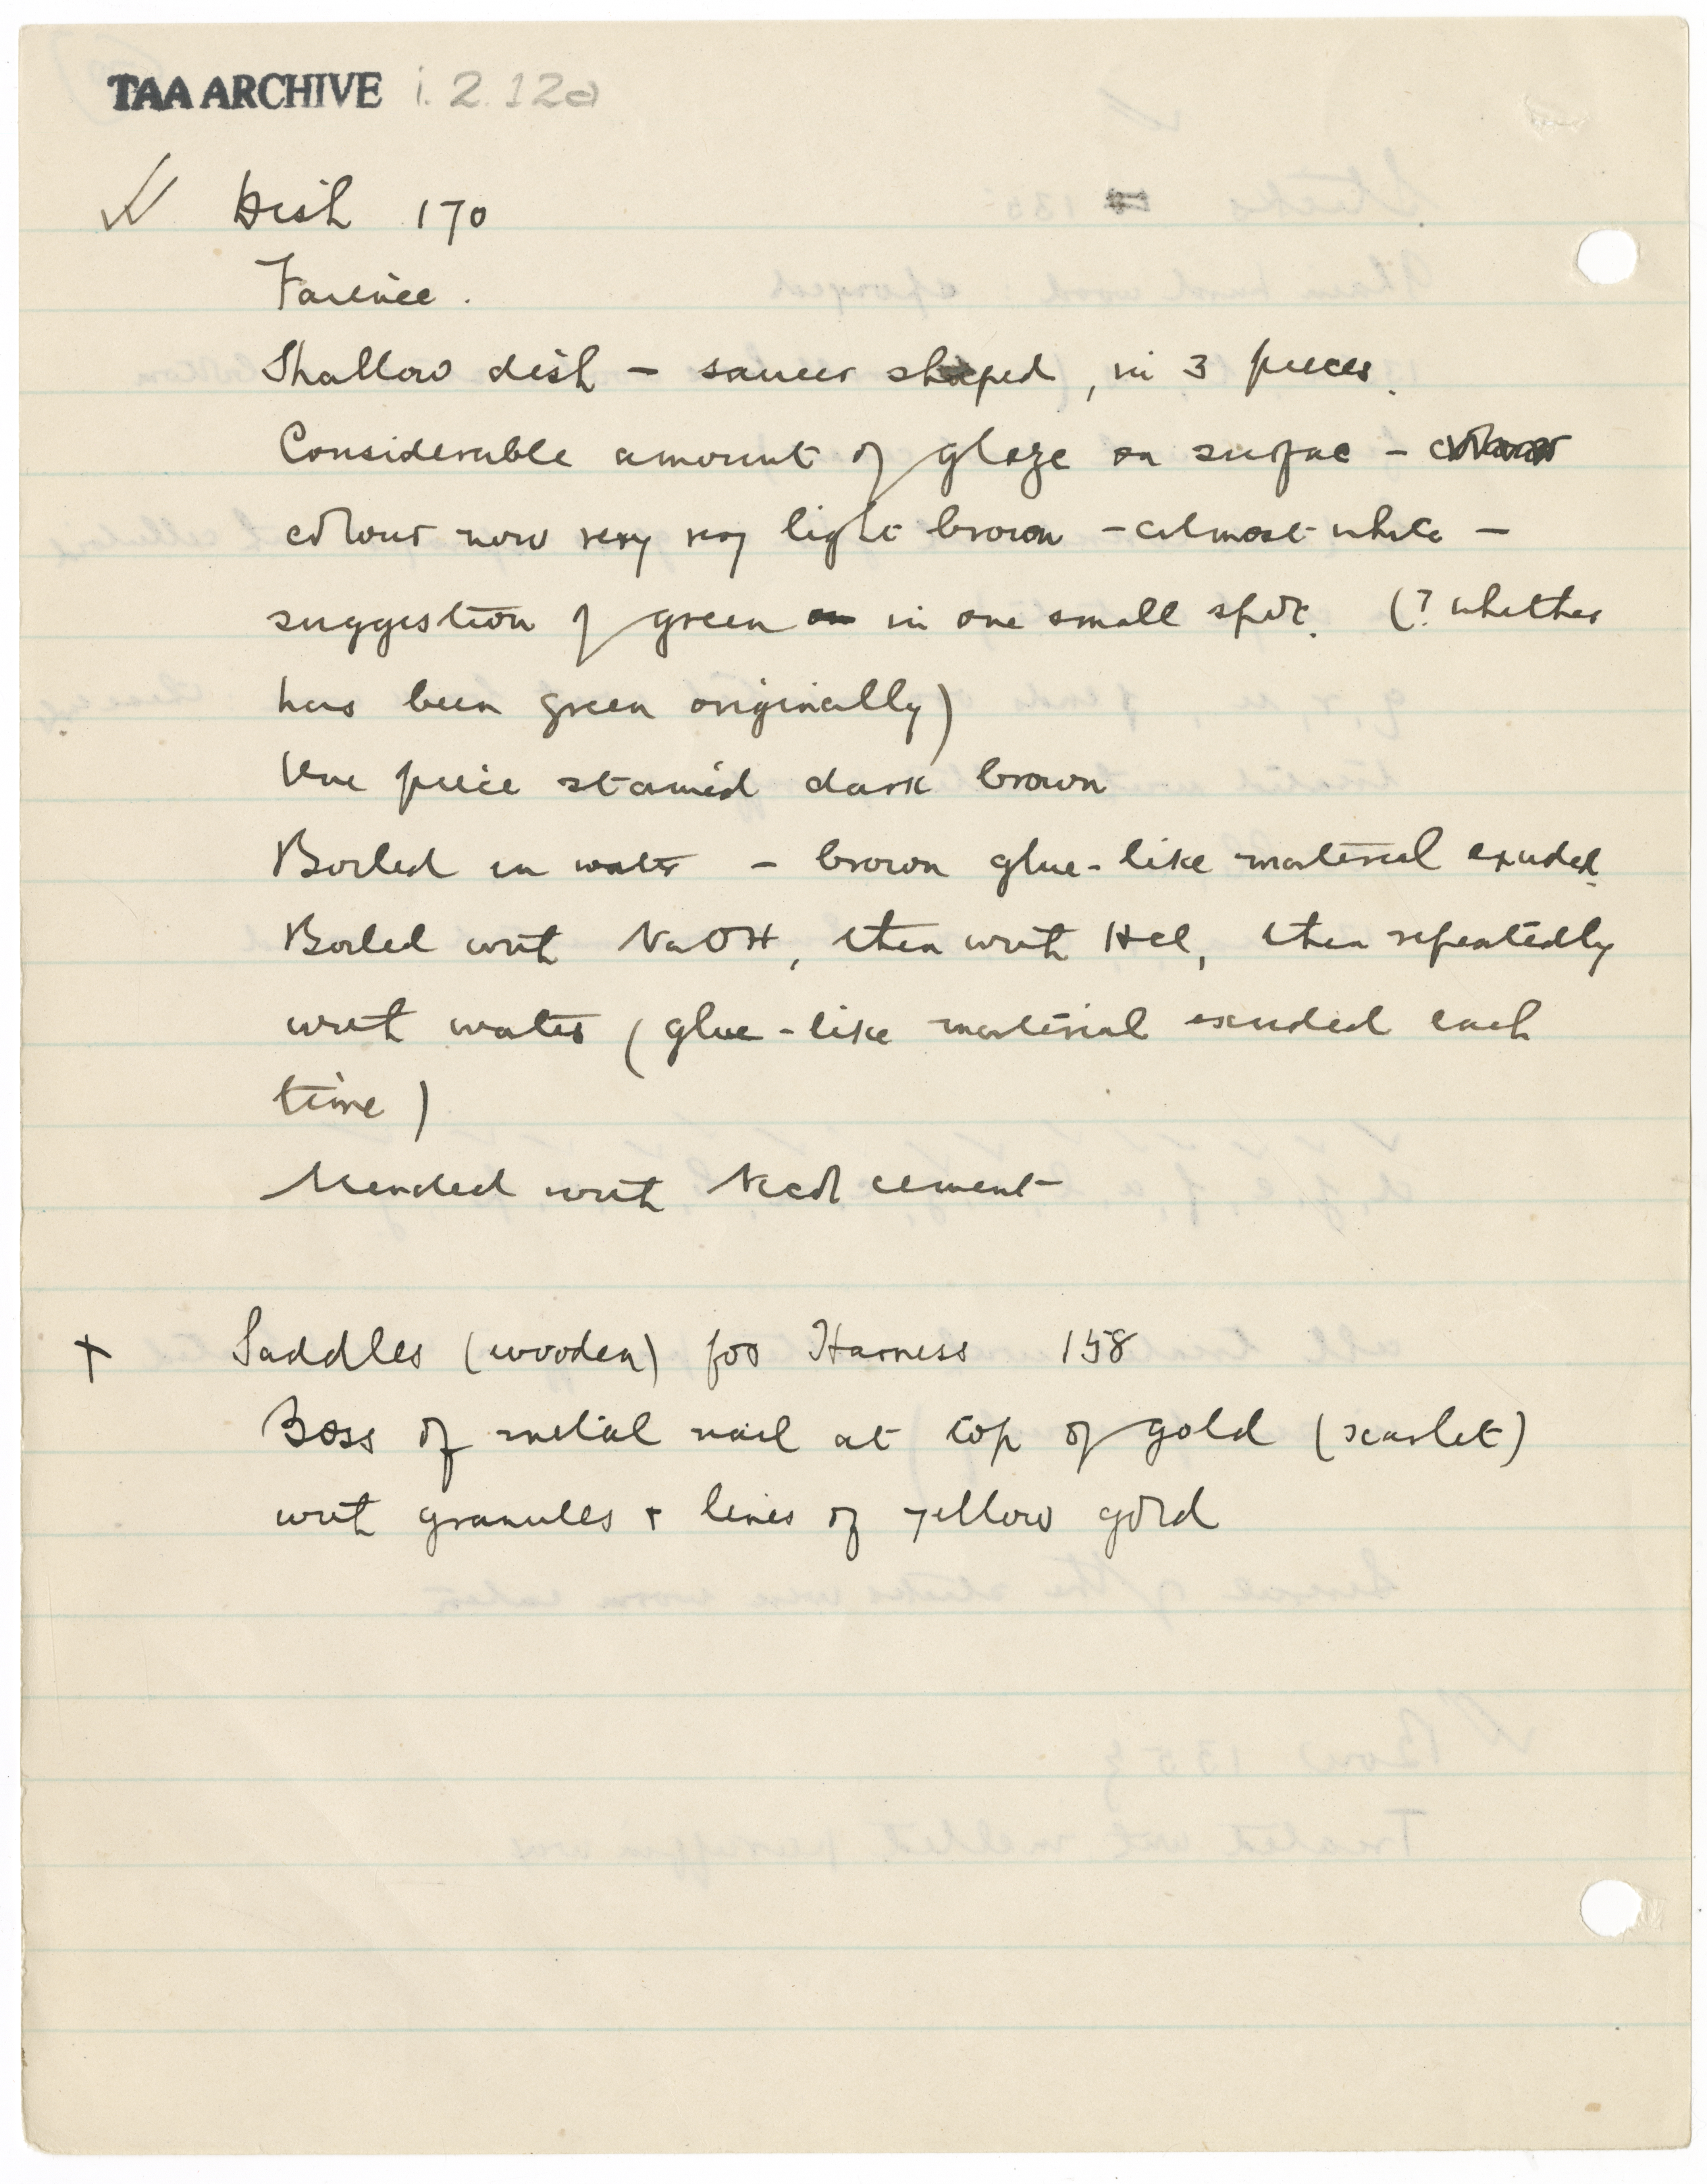 TAA ARCHIVE i.2.12a
Dish 170
Faience.
Shallow dish – saucer shaped, in 3 pieces.
Considerable amount of glaze on surface – colour
colour now very very light brown – almost white –
suggestion of green on in one small spot. (? whether
has been green originally)
One piece stained dark brown
Boiled in water – brown glue-like material exuded.
Boiled with NaOH, then with HCl, then repeatedly
with water (glue-like material exuded each
time)
Mended with cement
+ Saddles (wooden) for Harness 158
Boss of metal nail at top of gold (scarlet)
with granules + lines of yellow gold